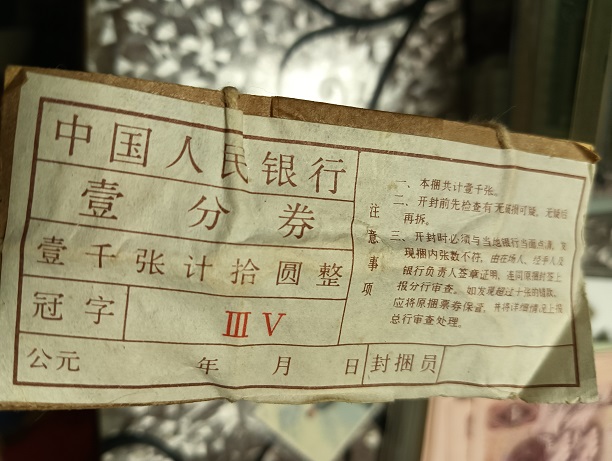 中国人民银行
壹分券
壹千张计拾圆整
冠字 ⅢⅤ
公元 年 月 日 封捆员
注意事项
一、本捆共计壹千张。
二、开封前先检查有无破损可疑，无疑后
再拆。
三、开封时必须与当地银行当面点清，发
现捆内张数不符，由在场人、经手人及
银行负责人签章证明，连同原捆封签上
报分行审查。如发现超过十张的错款，
应将原捆票券保管，并将详细情况上报
总行审查处理。